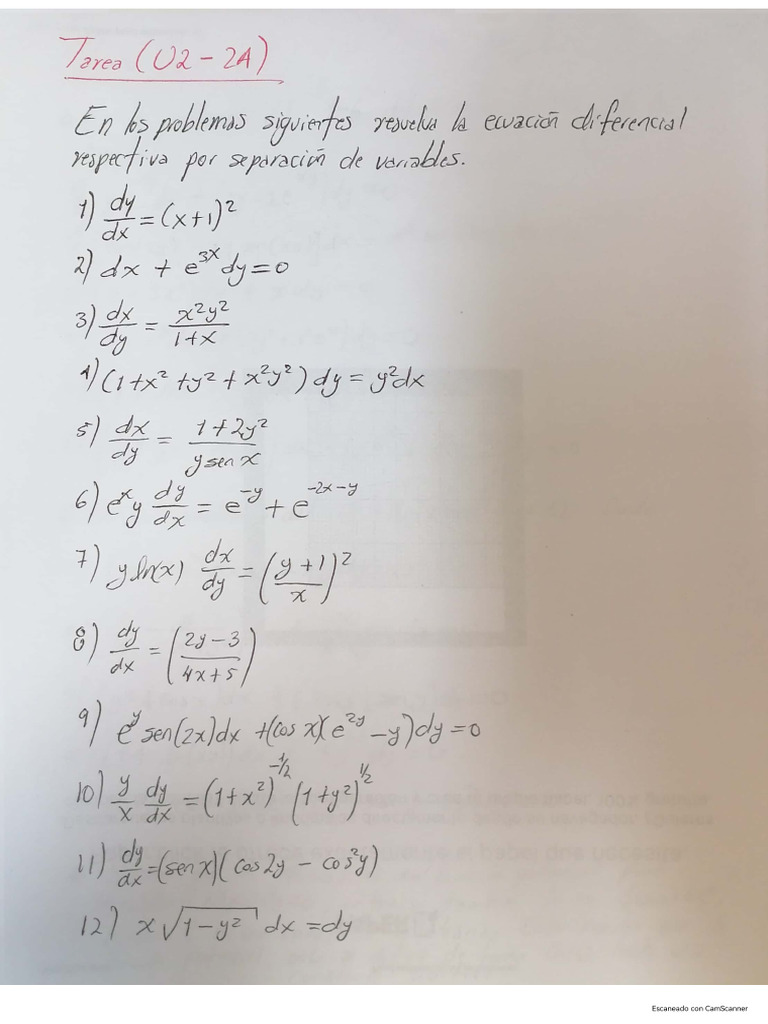 Tarea (U2-2A)
En los problemas siguientes resuelva la ecuación diferencial
respectiva por separación de variables.
1) dy/dx = (x+1)²
2) dx + e³ˣ dy = 0
3) dx/dy = x²y²/(1+x)
4) (1+x²+y²+x²y²) dy = y²dx
5) dx/dy = (1+2y²)/(y sen x)
6) eˣy dy/dx = e^(-y) + e^(-2x-y)
7) y ln(x) dx/dy = ((y+1)/x)²
8) dy/dx = ((2y-3)/(4x+5))
9) e^y sen(2x)dx + (cos x)(e^(2y) - y)dy = 0
10) y/x dy/dx = (1+x²)^(-1/2) (1+y²)^(1/2)
11) dy/dx = (sen x)(cos 2y - cos²y)
12) x √(1-y²) dx = dy
Escaneado con CamScanner